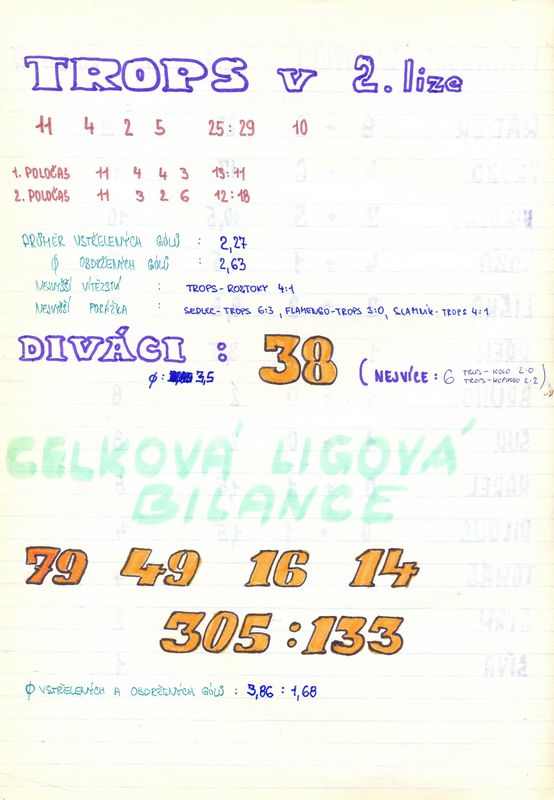 TROPS v 2. lize
11 4 2 5 25:29 10
1. POLOČAS 11 4 4 3 13:11
2. POLOČAS 11 3 2 6 12:18
PRŮMĚR VSTŘELENÝCH GÓLŮ : 2,27
Ø OBDRŽENÝCH GÓLŮ : 2,63
NEJVYŠŠÍ VÍTĚZSTVÍ : TROPS-ROZTOKY 4:1
NEJVYŠŠÍ PORÁŽKA : SEDLEC-TROPS 6:3, FLAMENGO-TROPS 3:0, SLAMNÍK-TROPS 4:1
DIVÁCI : 38 (NEJVÍCE: 6 TROPS-KOLO 2:0
Ø: 3,5 TROPS- 2:2)
CELKOVÁ LIGOVÁ
BILANCE
79 49 16 14
305:133
Ø VSTŘELENÝCH A OBDRŽENÝCH GÓLŮ : 3,86 : 1,68